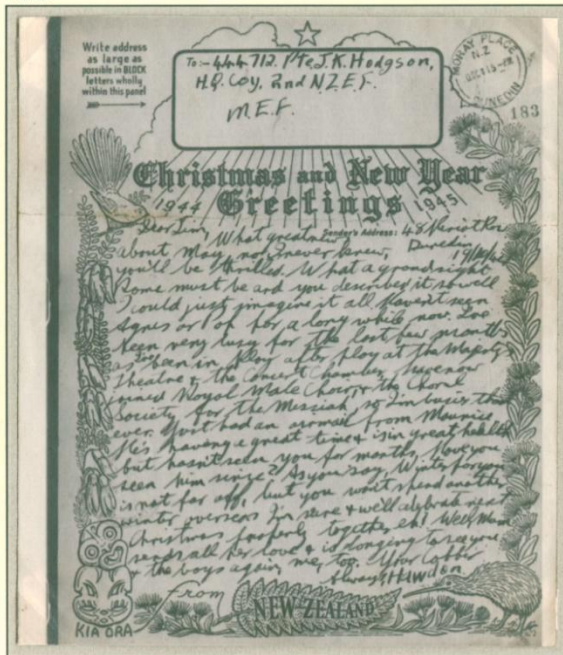 Write address
as large as
possible in BLOCK
letters wholly
within this panel
To:- 444712. Pte J.K. Hodgson,
H.Q. Coy, 2nd N.Z.E.F.
M.E.F.
MORAY PLACE
N.Z
DUNEDIN
183
Christmas and New Year
1944 Greetings 1945
Sender's Address: 48
Dear Jim, What great news Dunedin
about May
you'll be thrilled. What a grand sight
Rome must be and you described it so well
I could just imagine it all. Haven't seen
Agnes or of her for a long while now. I've
been very busy for the last few months
as I've been in play after play at His Majesty's
Theatre & the Concert Chamber, have now
joined Royal Male Choir & the Choral
Society for the Messiah, so I'm busier than
ever. Just had an airmail from Maurice
He's having a great time & is in great health
but hasn't seen you for months, have you
seen him since? As you say, Winter for you
is not far off, but you won't spend another
winter overseas I'm sure & we'll celebrate next
Christmas properly together, eh! Well, Mum
sends all her love & is longing to see you
& the boys again, me too. Your cobber
Always
from
NEW ZEALAND
KIA ORA